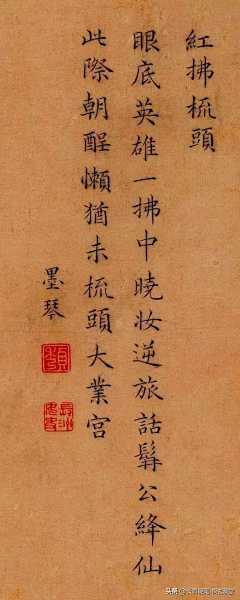 紅拂梳頭
眼底英雄一拂中曉妆逆旅話髯公絳仙
此際朝酲懶猶未梳頭大業宮
墨琴